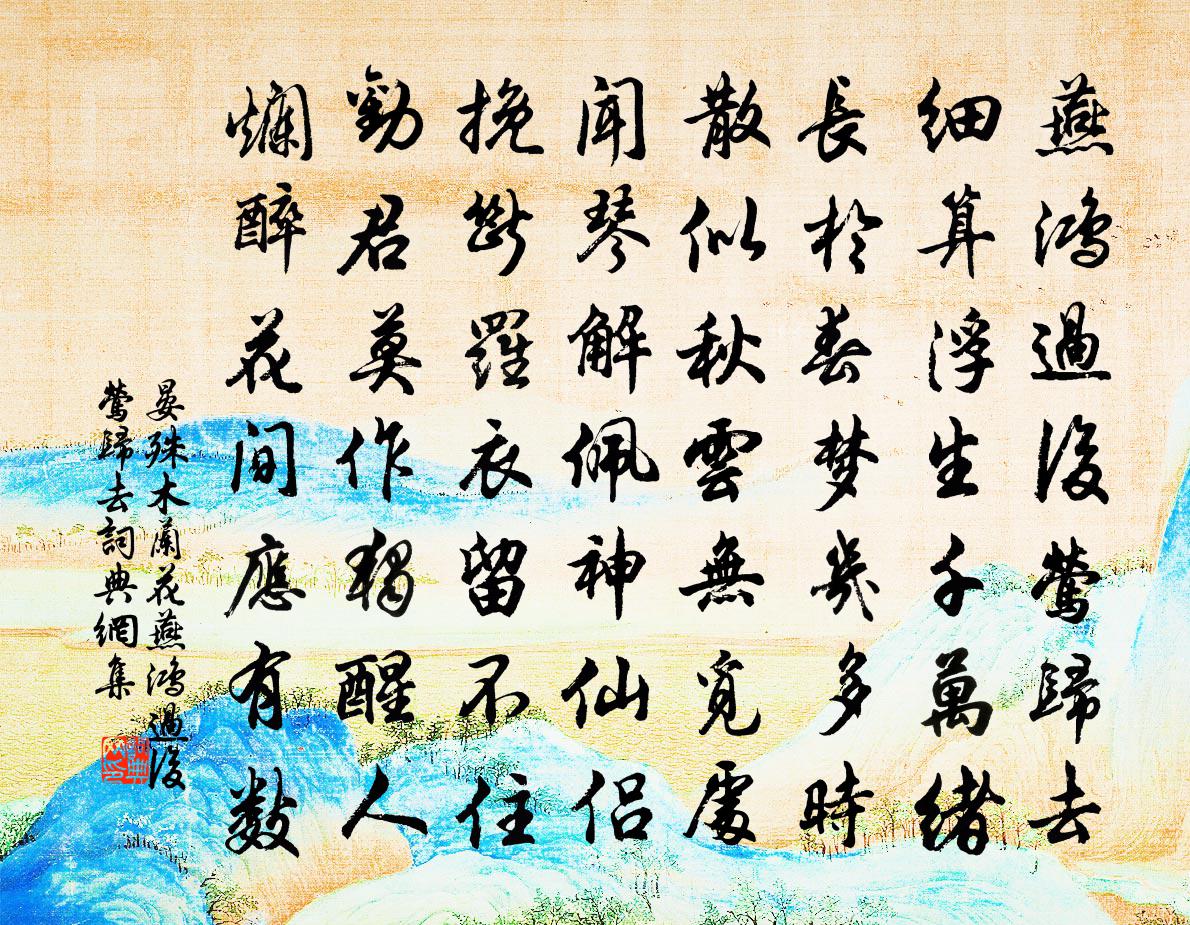 燕鴻過後鶯歸去
細算浮生千萬緒
長於春梦幾多時
散似秋雲無覓處
聞琴解佩神仙侣
挽斷羅衣留不住
勸君莫作獨醒人
爛醉花間應有數
晏殊木蘭花燕鴻過後
鶯歸去詞典網集